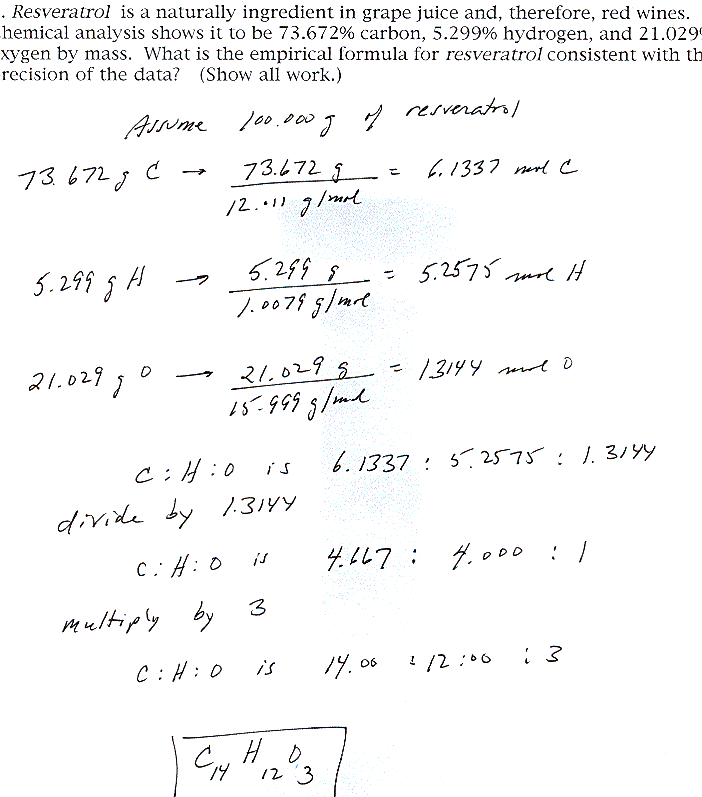 . Resveratrol is a naturally ingredient in grape juice and, therefore, red wines.
hemical analysis shows it to be 73.672% carbon, 5.299% hydrogen, and 21.029%
xygen by mass. What is the empirical formula for resveratrol consistent with th
recision of the data? (Show all work.)
Assume 100.000 g of resveratrol
73.672 g C → 73.672 g / 12.011 g/mol = 6.1337 mol C
5.299 g H → 5.299 g / 1.0079 g/mol = 5.2575 mol H
21.029 g O → 21.029 g / 15.999 g/mol = 1.3144 mol O
C : H : O is 6.1337 : 5.2575 : 1.3144
divide by 1.3144
C : H : O is 4.667 : 4.000 : 1
multiply by 3
C : H : O is 14.00 : 12.00 : 3
C14 H12 O3